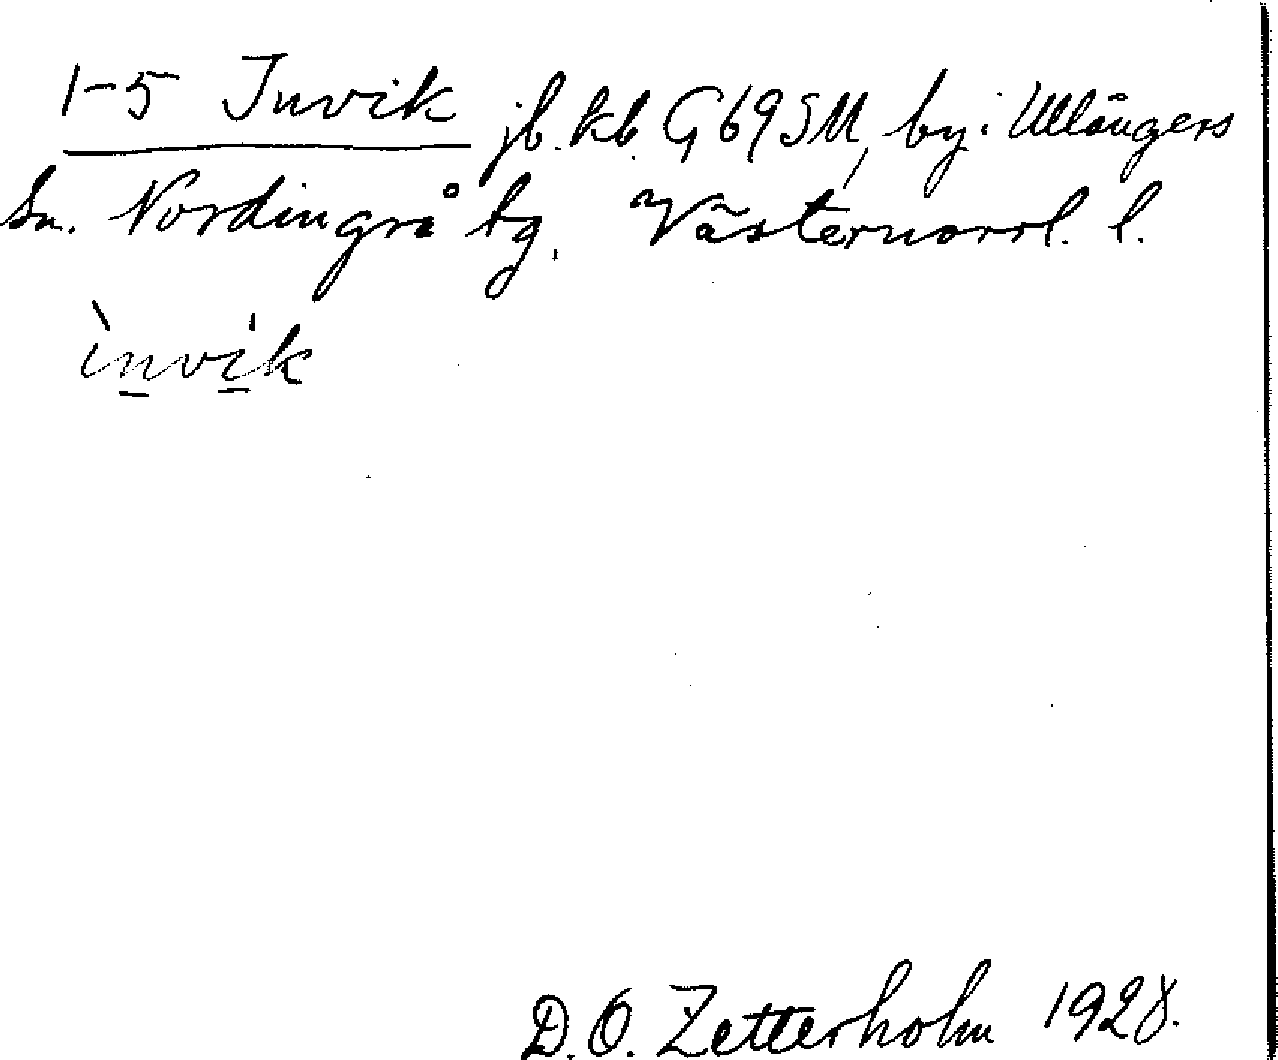 1-5 Invik jb. kb. G69SM, by i Ullångers
sn. Nordingrå tg. Västernorrl. l.
ìnvik
D. O. Zetterholm 1928.